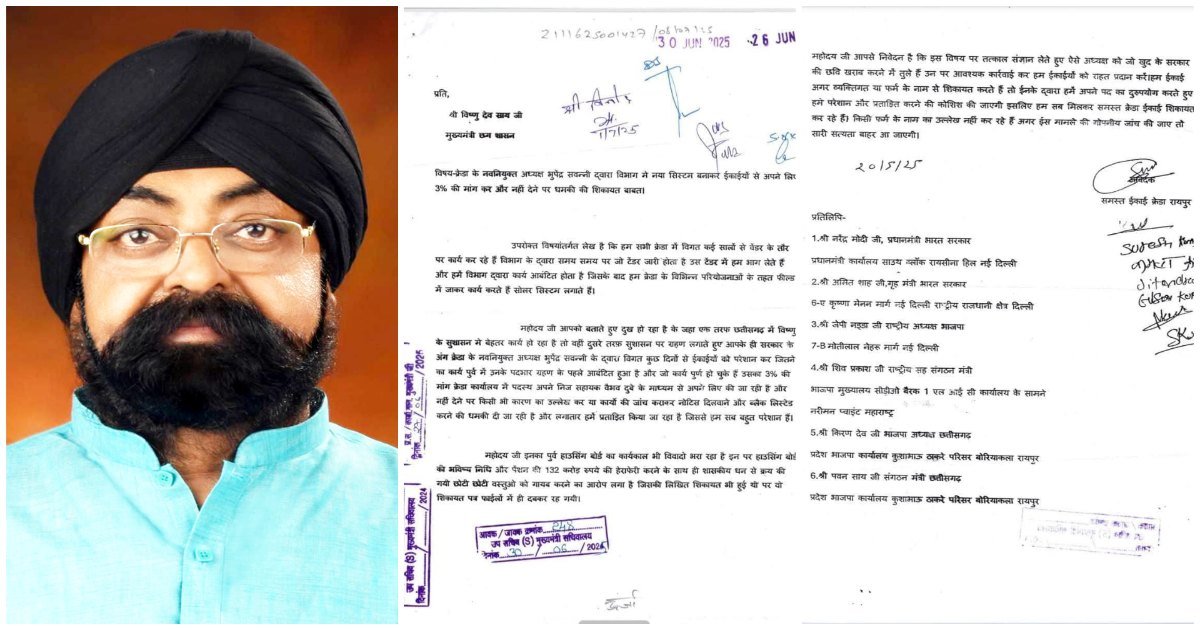 2111625001427/08/07/25
30 JUN 2025
26 JUN
प्रति,
श्री विष्णु देव साय जी
मुख्यमंत्री छग शासन
श्री विनोद
1/7/25
विषय-क्रेडा के नवनियुक्त अध्यक्ष भुपेंद्र सवन्नी द्वारा विभाग मे नया सिस्टम बनाकर ईकाईयों से अपने लिए
3% की मांग कर और नहीं देने पर धमकी की शिकायत बाबत।
उपरोक्त विषयांतर्गत लेख है कि हम सभी क्रेडा में विगत कई सालो से वेंडर के तौर
पर कार्य कर रहे हैं विभाग के द्वारा समय समय पर जो टेंडर जारी होता है उस टेंडर में हम भाग लेते हैं
और हमें विभाग द्वारा कार्य आबंटित होता है जिसके बाद हम क्रेडा के विभिन्न परियोजनाओं के तहत फील्ड
में जाकर कार्य करते हैं सोलर सिस्टम लगाते हैं।
महोदय जी आपको बताते हुए दुख हो रहा है के जहा एक तरफ छतीसगढ़ में विष्णु
के सुशासन मे बेहतर कार्य हो रहा है तो वहीं दुसरे तरफ सुशासन पर ग्रहण लगाते हुए आपके ही सरकार के
अंग क्रेडा के नवनियुक्त अध्यक्ष भुपेंद्र सवन्नी के द्वारा विगत कुछ दिनों से ईकाईयों को परेशान कर जितने
का कार्य पुर्व में उनके पदभार ग्रहण के पहले आबंटित हुआ है और जो कार्य पुर्ण हो चुके हैं उसका 3% की
मांग क्रेडा कार्यालय में पदस्थ अपने निज सहायक वैभव दुबे के माध्यम से अपने लिए की जा रही है और
नहीं देने पर किसी भी कारण का उल्लेख कर या कार्यो की जांच कराकर नोटिस दिलवाने और ब्लैक लिस्टेड
करने की धमकी दी जा रही है और लगातार हमें प्रताड़ित किया जा रहा है जिससे हम सब बहुत परेशान हैं।
महोदय जी इनका पुर्व हाउसिंग बोर्ड का कार्यकाल भी विवादो भरा रहा है इन पर हाउसिंग बोर्ड
की भविष्य निधि और पेंशन की 132 करोड़ रुपये की हेराफेरी करने के साथ ही शासकीय धन से क्रय की
गयी छोटी छोटी वस्तुओ को गायब करने का आरोप लगा है जिसकी लिखित शिकायत भी हुई थी पर वो
शिकायत पत्र फाईलों में ही दबकर रह गयी।
आवक / जावक क्रमांक 248
उप सचिव (S) मुख्यमंत्री सचिवालय
दिनांक 30 / 06 / 2025
उप सचिव (S) मुख्यमंत्री सचिवालय
दिनांक / 2024
महोदय जी आपसे निवेदन है कि इस विषय पर तत्काल संज्ञान लेते हुए ऐसे अध्यक्ष को जो खुद के सरकार
की छवि खराब करने में तुले हैं उन पर आवश्यक कार्रवाई कर हम ईकाईयों को राहत प्रदान करें।हम ईकाई
अगर व्यक्तिगत या फर्म के नाम से शिकायत करते हैं तो ईनके द्वारा हमें अपने पद का दुरुपयोग करते हुए
हमे परेशान और प्रताड़ित करने की कोशिश की जाएगी इसलिए हम सब मिलकर समस्त क्रेडा ईकाई शिकायत
कर रहे हैं। किसी फर्म के नाम का उल्लेख नही कर रहे हैं अगर ईस मामले की गोपनीय जांच की जाए तो
सारी सत्यता बाहर आ जाएगी।
20/5/25
आवेदक
समस्त ईकाई क्रेडा रायपुर
प्रतिलिपि-
1.श्री नरेंद्र मोदी जी, प्रधानमंत्री भारत सरकार
प्रधानमंत्री कार्यालय साउथ ब्लॉक रायसीना हिल नई दिल्ली
2.श्री अमित शाह जी,गृह मंत्री भारत सरकार
6-ए कृष्णा मेनन मार्ग नई दिल्ली राष्ट्रीय राजधानी क्षेत्र दिल्ली
3.श्री जेपी नड्डा जी राष्ट्रीय अध्यक्ष भाजपा
7-B मोतीलाल नेहरू मार्ग नई दिल्ली
4.श्री शिव प्रकाश जी राष्ट्रीय सह संगठन मंत्री
भाजपा मुख्यालय सीडीओ बैरक 1 एल आई सी कार्यालय के सामने
नरीमन प्वाइंट महाराष्ट्र
5.श्री किरण देव जी भाजपा अध्यक्ष छतीसगढ़
प्रदेश भाजपा कार्यालय कुशाभाऊ ठाकरे परिसर बोरियाकला रायपुर
6.श्री पवन साय जी संगठन मंत्री छतीसगढ़
प्रदेश भाजपा कार्यालय कुशाभाऊ ठाकरे परिसर बोरियाकला रायपुर